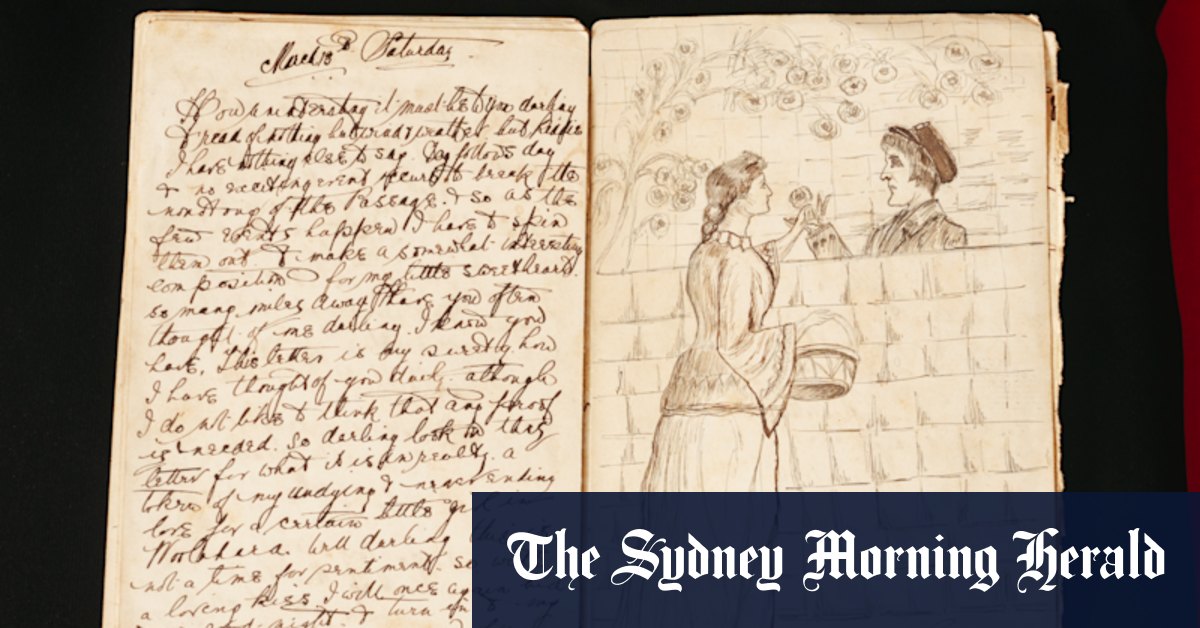 March 13th Saturday
How uninteresting it must be to you darling
to read of nothing but wind & weather but
I have nothing else to say. Day follows day
& no exciting event occurs to break the
of the Passage. & so as the
few events happen I have to spin
them out & make a somewhat interesting
composition for my little sweetheart.
so many miles away. Have you often
thought of me darling. I know you
have. This letter is my surety how
I have thought of you daily. although
I do not like to think that any proof
is needed. so darling look on this
letter for what it is in reality. a
token of my undying & never ending
love for a certain little girl in
Woolahara. Well darling this
not a time for sentiment. so
a loving kiss I will once again
good night & turn in
The Sydney Morning Herald